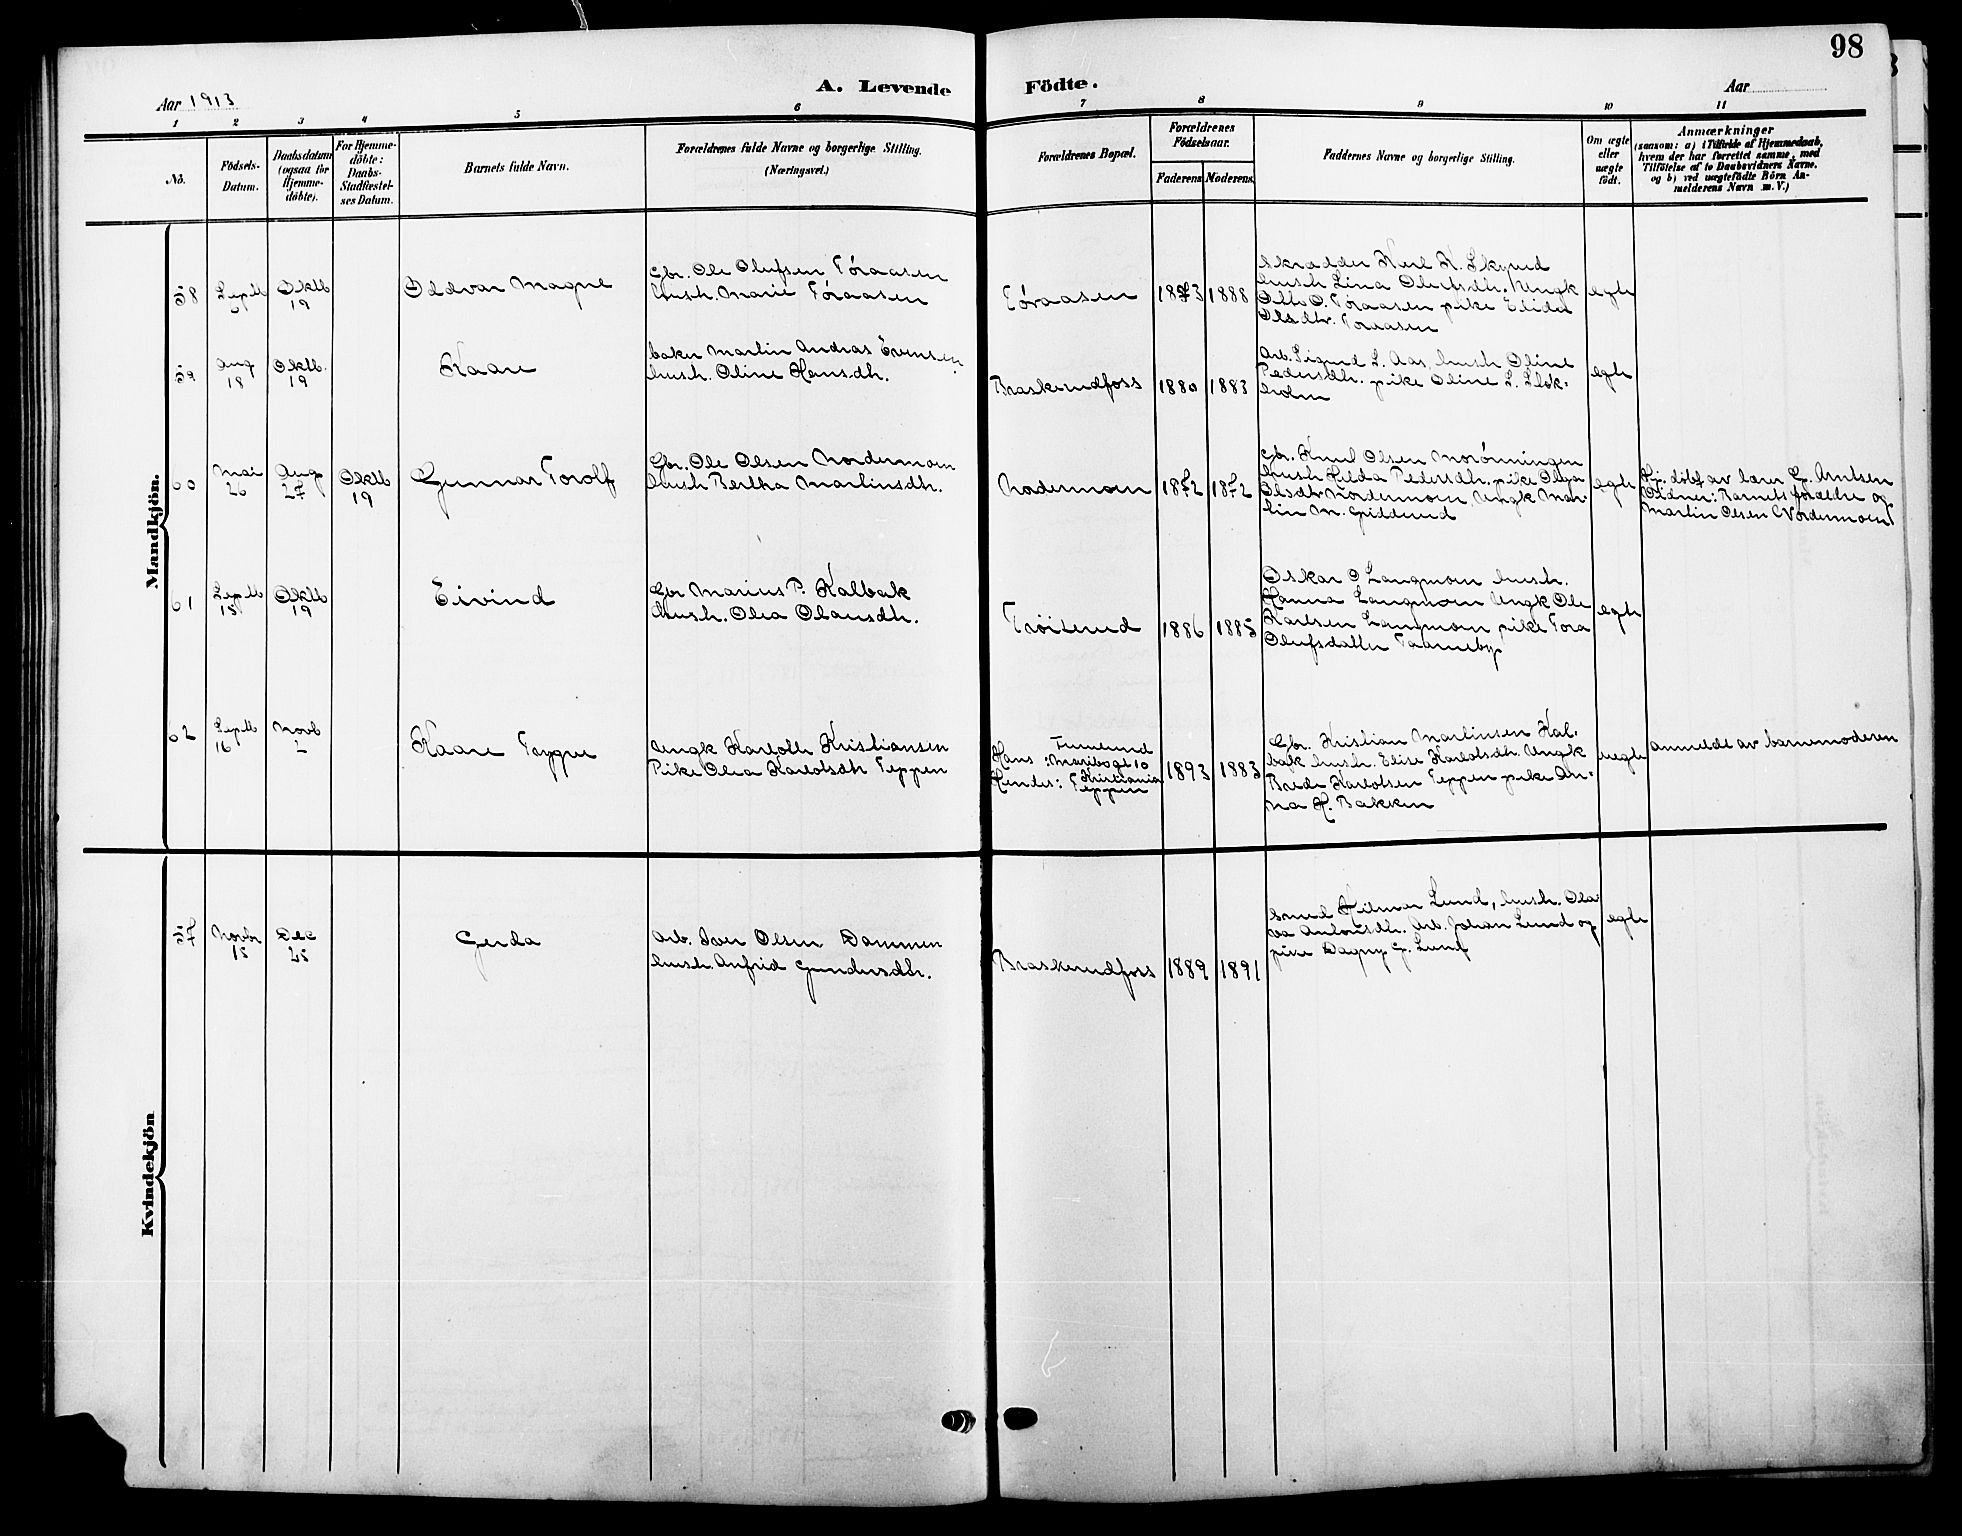 98
Aar 1913
A. Levende
Födte.
Aar
1 2 3 4 5 6 7 8 9 10 11
No.
Födsels-
Datum.
Daabsdatum
(ogsaa for
Hjemme-
döbte).
For Hjemme-
döbte:
Daabs-
Stadfæstel-
ses Datum.
Barnets fulde Navn.
Forældrenes fulde Navne og borgerlige Stilling.
(Næringsvei.)
Forældrenes Bopæl.
Forældrenes
Födselsaar.
Faderens Moderens.
Faddernes Navne og borgerlige Stilling.
Om ægte
eller
uægte
födt.
Anmærkninger
(saasom: a) i Tilfælde af Hjemmedaab,
hvem der har forrettet samme, med
Tilföielse af to Daabsvidners Navne.
og b) ved uægtefödte Börn An-
melderens Navn m. V.)
Mandkjön.
58
Septb
Oktb
19
Oddvar Magne
Gbr. Ole Olufsen Töraasen
hush. Marie Töraasen
Töraasen
1873
1888
Skrædder Karl K. Skyrud
hush Lina Olufsdh. Ungk
Otto O. Töraasen pike Elida
Olsdtr. Toraasen
egte
59
Aug
18
Oktb.
19
Kaare
baker Martin Andras Evensen
hush. Oline Hansdh.
Braskerudfoss
1880
1883
Arb. Sigurd L. Aas, hush Oline
Pedersdh. pike Oline L.
egte
60
Mai
26
Aug
27
Oktb
19
Gunnar Torolf
Gbr. Ole Olsen Nordermoen
hush Bertha Martinsdh.
Nodermoen
1872
1872
Gbr. Knut Olsen Morönningen
hush Hilda Pedersdh. pike Olga
Olsdtr Nordermoen, Ungk Mar-
tin M. Gidderud
egte
Hj. döbt av lærer G. Arntsen
Vidner: Barnets forældre og
Martin Olsen Nordermoen
61
Septb
15
Oktb
19
Eivind
Gbr Marius P. Kalbak
hush. Olea Olausdh.
Tröiterud
1886
1885
Oskar O Langmoen hush.
Hanna Langmoen Ungk Ole
Karlsen Langmoen pike Tora
Olufsdatter Taarneby
egte
62
Septb
16
Novb
2
Kaare Trygve
Ungk Karlotte Kristiansen
Pike Olea Karlotsdh Teppen
Furulund
Hans: Maribogt 10
Kristiania
Hendes: Teppen
1893
1883
Gbr. Kristian Martinsen Kal-
bak hush. Elise Karlotsdh. Ungk
Brede Karlotsen Teppen pike An-
na H. Bakken
uegte
anmeldt av barnemoderen
Kvindekjön
57
Novbr
15
Dec
25
Gerda
Arb. Iver Olsen Dammen
hush. Anfrid Gundersdh.
Braskerudfoss
1889
1891
Smed Hilmar Lund, hush. Ola-
va Antonsdh. Arb. Johan Lund og
pike Dagny G. Lund
egte